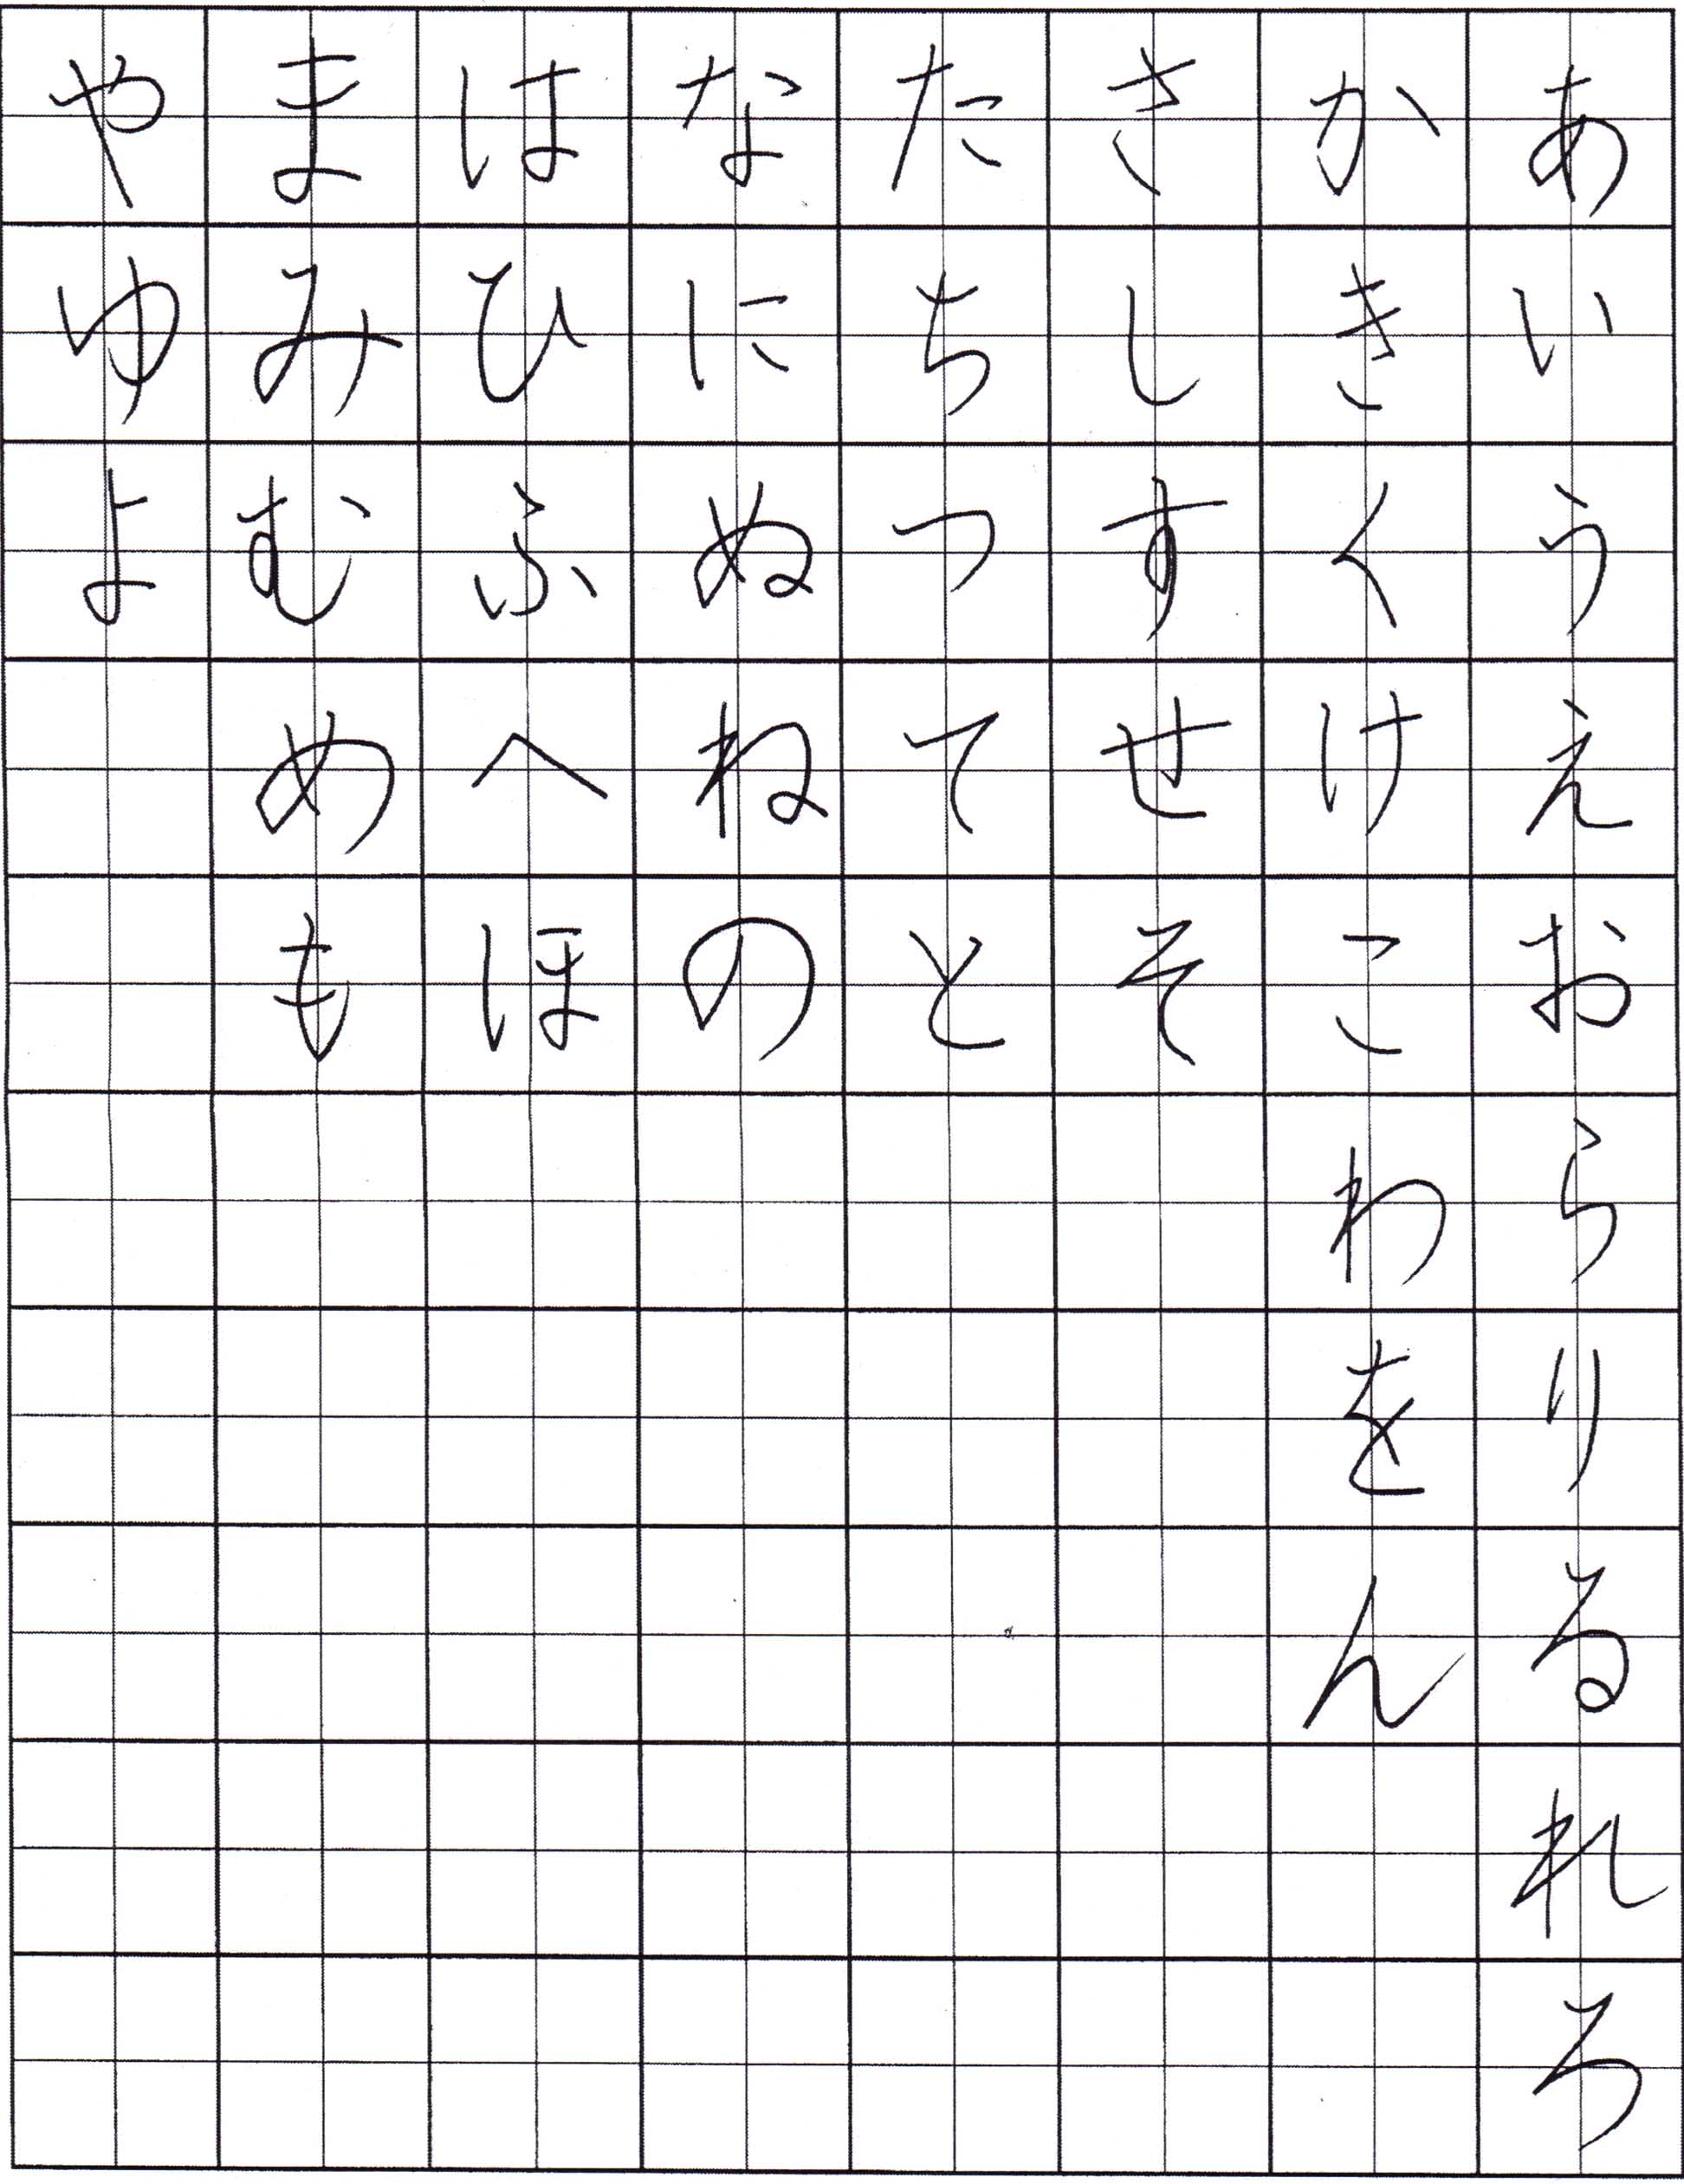 あいうえおらりるれろ
かきくけこわをん
さしすせそ
たちつてと
なにぬねの
はひふへほ
まみむめも
やゆよ